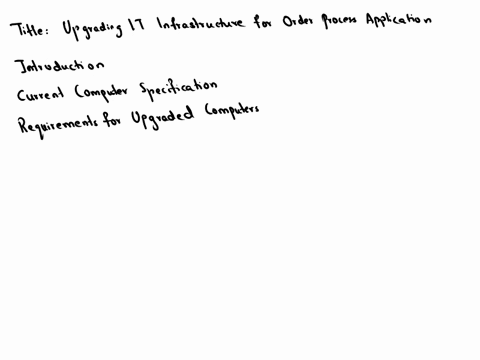 Title: Upgrading IT Infrastructure for Order Process Application
Introduction
Current Computer Specification
Requirements for Upgraded Computers